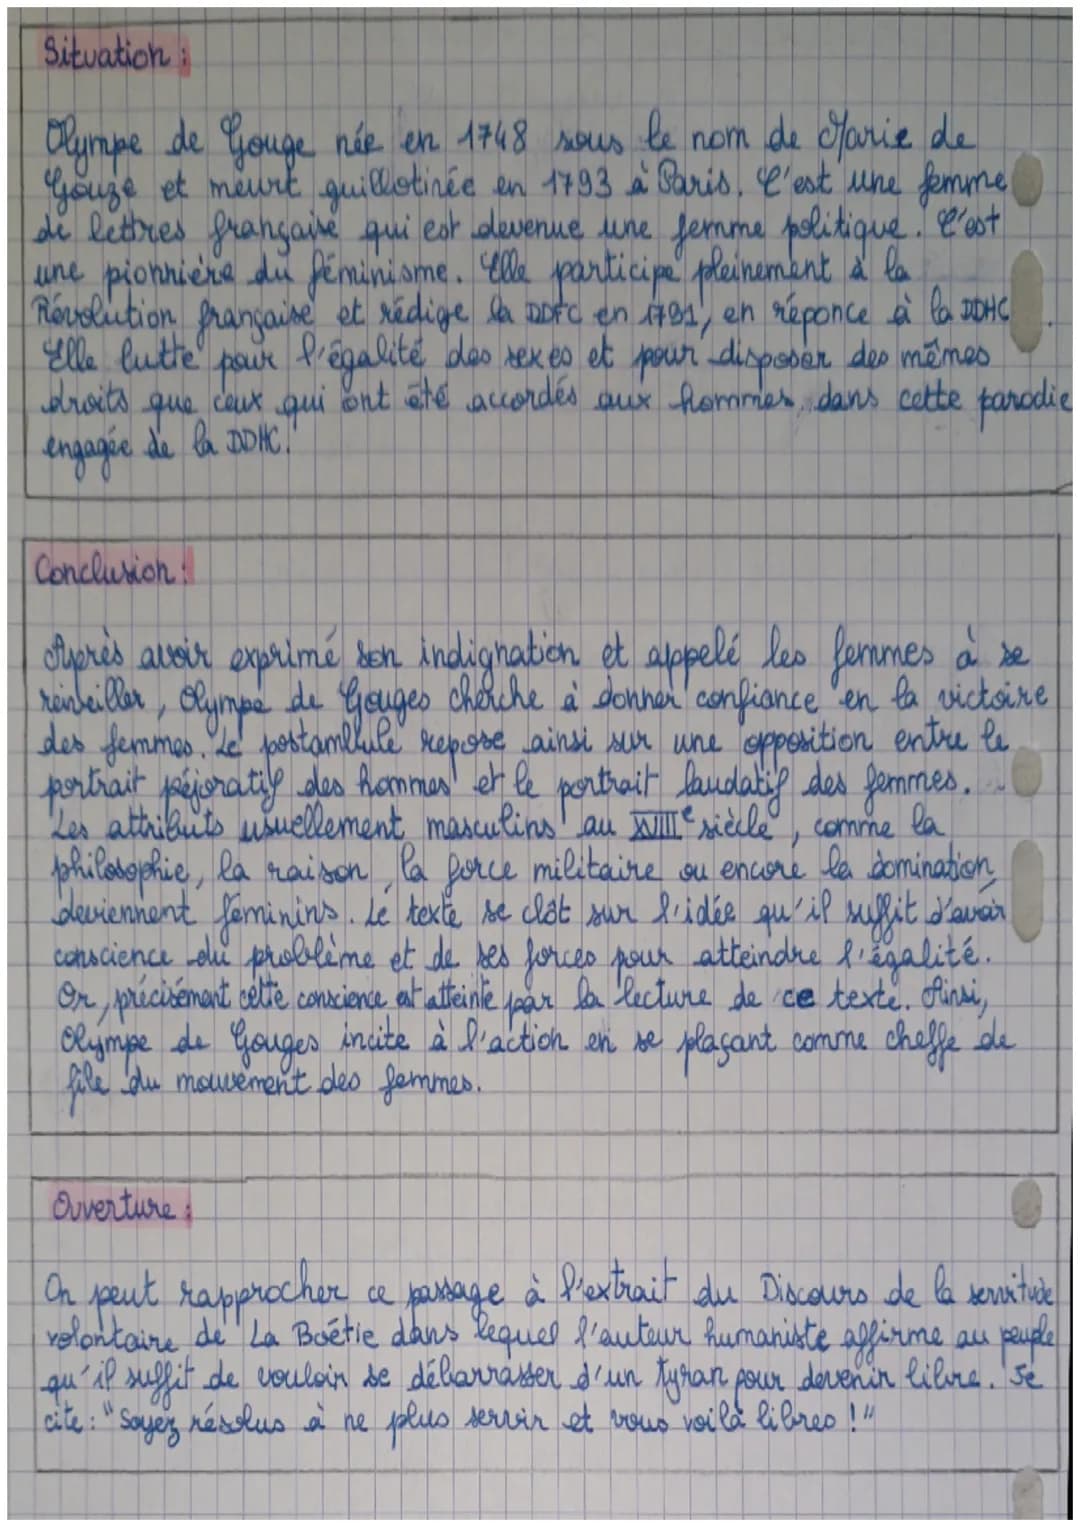 Situation :
Olympe de Gouge née en 1748 sous le nom de Marie de
Gouze et meurt guillotinée en 1793 à Paris. C'est une femme
de lettres française qui est devenue une femme politique. C'est
une pionnière du féminisme. Elle participe pleinement à la
Révolution française et rédige la DDFC en 1791, en réponce à la DDHC.
Elle lutte pour l'égalité des sexes et pour disposer des mêmes
droits que ceux qui ont été accordés aux hommes, dans cette parodie
engagée de la DDHC.
Conclusion :
Après avoir exprimé son indignation et appelé les femmes à se
réveiller, Olympe de Gouges cherche à donner confiance en la victoire
des femmes. Le postambule repose ainsi sur une opposition entre le
portrait péjoratif des hommes et le portrait laudatif des femmes.
Les attributs usuellement masculins au XVIIIe siècle, comme la
philosophie, la raison, la force militaire ou encore la domination,
deviennent féminins. Le texte se clôt sur l'idée qu'il suffit d'avoir
conscience du problème et de ses forces pour atteindre l'égalité.
Or, précisément cette conscience est atteinte par la lecture de ce texte. Ainsi,
Olympe de Gouges incite à l'action en se plaçant comme cheffe de
file du mouvement des femmes.
Ouverture :
On peut rapprocher ce passage à l'extrait du Discours de la servitude
volontaire de La Boétie dans lequel l'auteur humaniste affirme au peuple
qu'il suffit de vouloir se débarrasser d'un tyran pour devenir libre. Je
cite : "Soyez résolus à ne plus servir et vous voilà libres !"